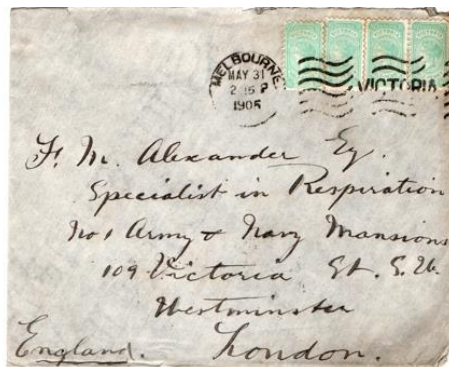 MELBOURNE
MAY 31
2 15 P
1905
VICTORIA
F. M. Alexander Esq.
Specialist in Respiration
No 1 Army & Navy Mansions
109 Victoria St. S.W.
Westminster
London.
England.